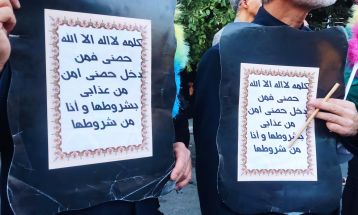 كلمه لااله الا الله
حصنی فمن
دخل حصنی امن
من عذابی
بشروطها و أنا
من شروطها
كلمه لااله الا الله
حصنی فمن
دخل حصنی امن
من عذابی
بشروطها و أنا
من شروطها